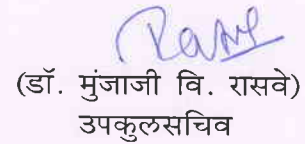 (डॉ. मुंजाजी वि. रासवे)
उपकुलसचिव